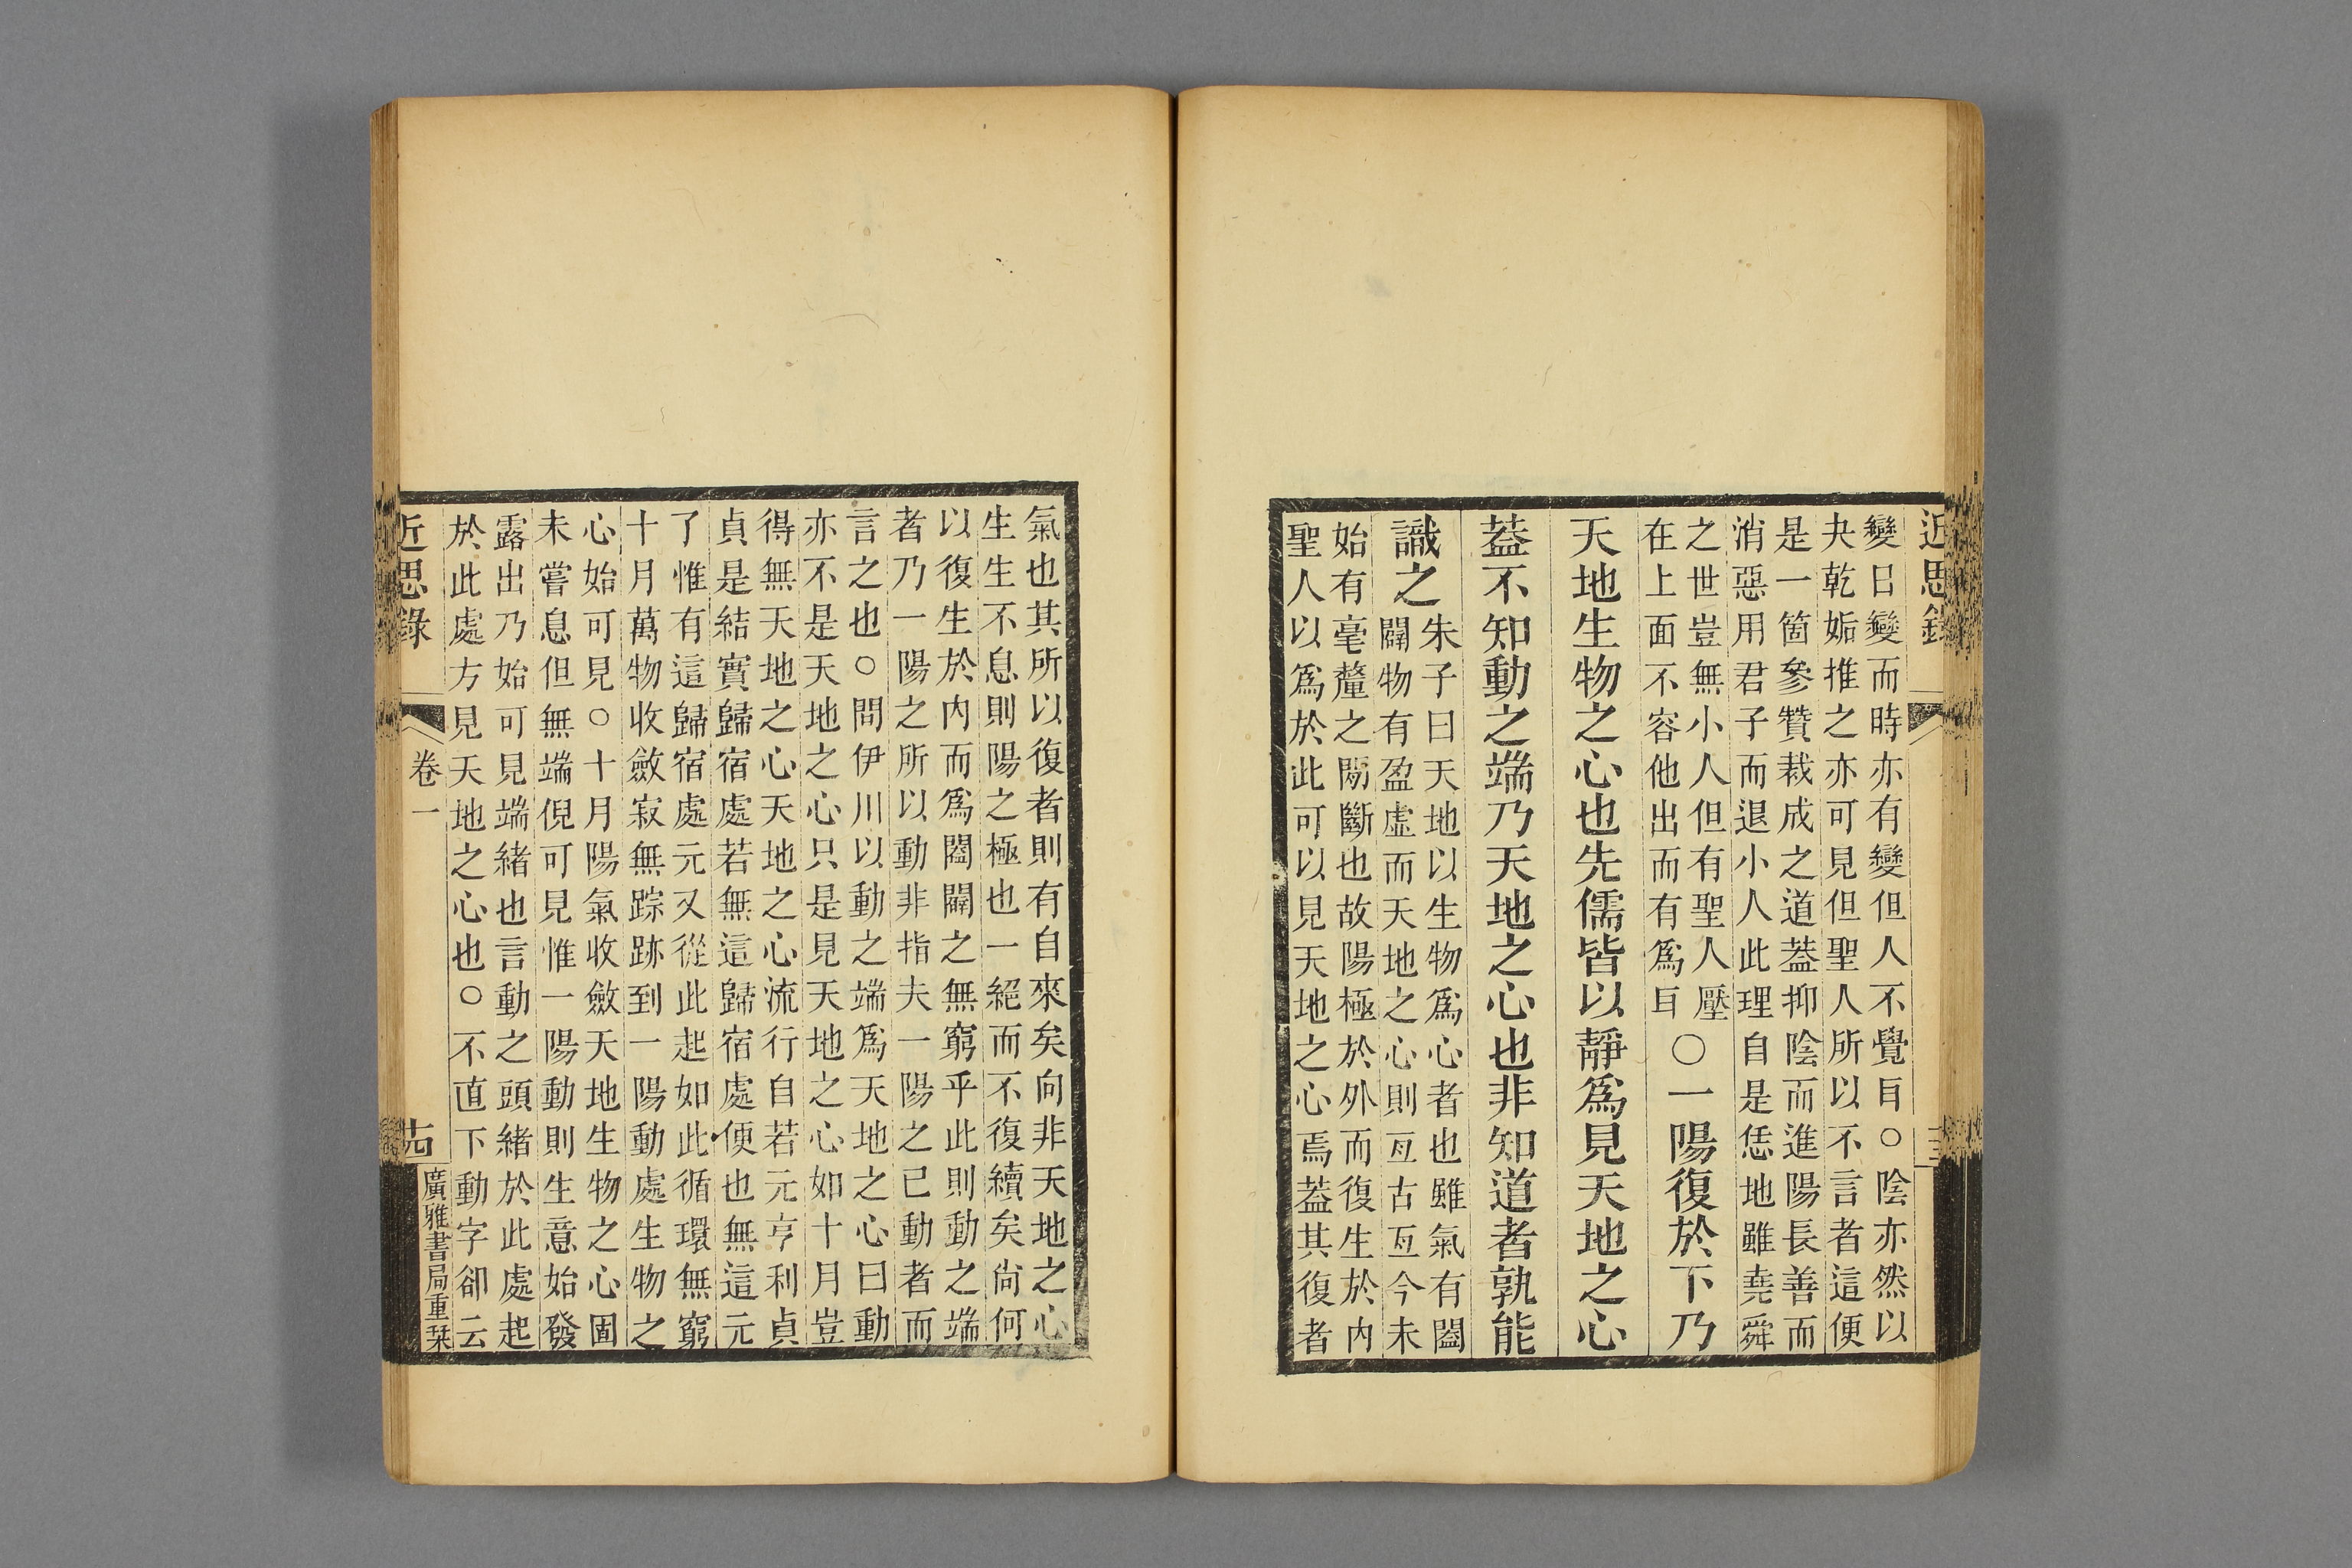 近思錄
變日變而時亦有變但人不覺耳○陰亦然以
夬乾姤推之亦可見但聖人所以不言者這便
是一箇參贊裁成之道葢抑陰而進陽長善而
消惡用君子而退小人此理自是恁地雖堯舜
之世豈無小人但有聖人壓
在上面不容他出而有爲耳
○一陽復於下乃
天地生物之心也先儒皆以靜爲見天地之心
葢不知動之端乃天地之心也非知道者孰能
識之
朱子曰天地以生物爲心者也雖氣有闔
闢物有盈虛而天地之心則亙古亙今未
始有毫釐之閒斷也故陽極於外而復生於內
聖人以爲於此可以見天地之心焉葢其復者
氣也其所以復者則有自來矣向非天地之心
生生不息則陽之極也一絕而不復續矣尙何
以復生於內而爲闔闢之無窮乎此則動之端
者乃一陽之所以動非指夫一陽之已動者而
言之也○問伊川以動之端爲天地之心曰動
亦不是天地之心只是見天地之心如十月豈
得無天地之心天地之心流行自若元亨利貞
貞是結實歸宿處若無這歸宿處便也無這元
了惟有這歸宿處元又從此起如此循環無窮
十月萬物收斂寂無踪跡到一陽動處生物之
心始可見○十月陽氣收斂天地生物之心固
未嘗息但無端倪可見惟一陽動則生意始發
露出乃始可見端緒也言動之頭緒於此處起
於此處方見天地之心也○不直下動字卻云
近思錄
卷一
廣雅書局重栞